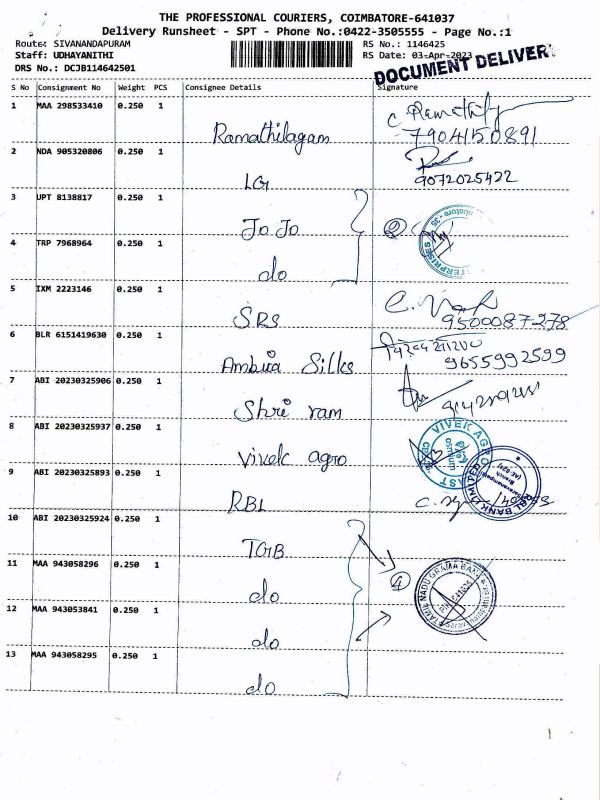 THE PROFESSIONAL COURIERS, COIMBATORE-641037
Delivery Runsheet - SPT - Phone No.:0422-3505555 - Page No.:1
Route: SIVANANDAPURAM
RS No.: 1146425
Staff: UDHAYANITHI
RS Date: 03-Apr-2023
DRS No.: DCJB114642501
DOCUMENT DELIVER
S No Consignment No Weight PCS Consignee Details Signature
1 MAA 298533410 0.250 1
Ramathilagam
7904150891
2 NDA 905320806 0.250 1
LG
9072025422
3 UPT 8138817 0.250 1
JoJo
2
4 TRP 7968964 0.250 1
do
5 IXM 2223146 0.250 1
SRS
9500087278
6 BLR 6151419630 0.250 1
Ambica Silks
9655992599
7 ABI 20230325906 0.250 1
Shri ram
8 ABI 20230325937 0.250 1
Vivek agro
VIVEK AG
9 ABI 20230325893 0.250 1
RBL
RBL BANK LIMITED
10 ABI 20230325924 0.250 1
TGB
11 MAA 943058296 0.250 1
do
4
TAMIL NADU GRAMA BANK
12 MAA 943053841 0.250 1
do
13 MAA 943058295 0.250 1
do